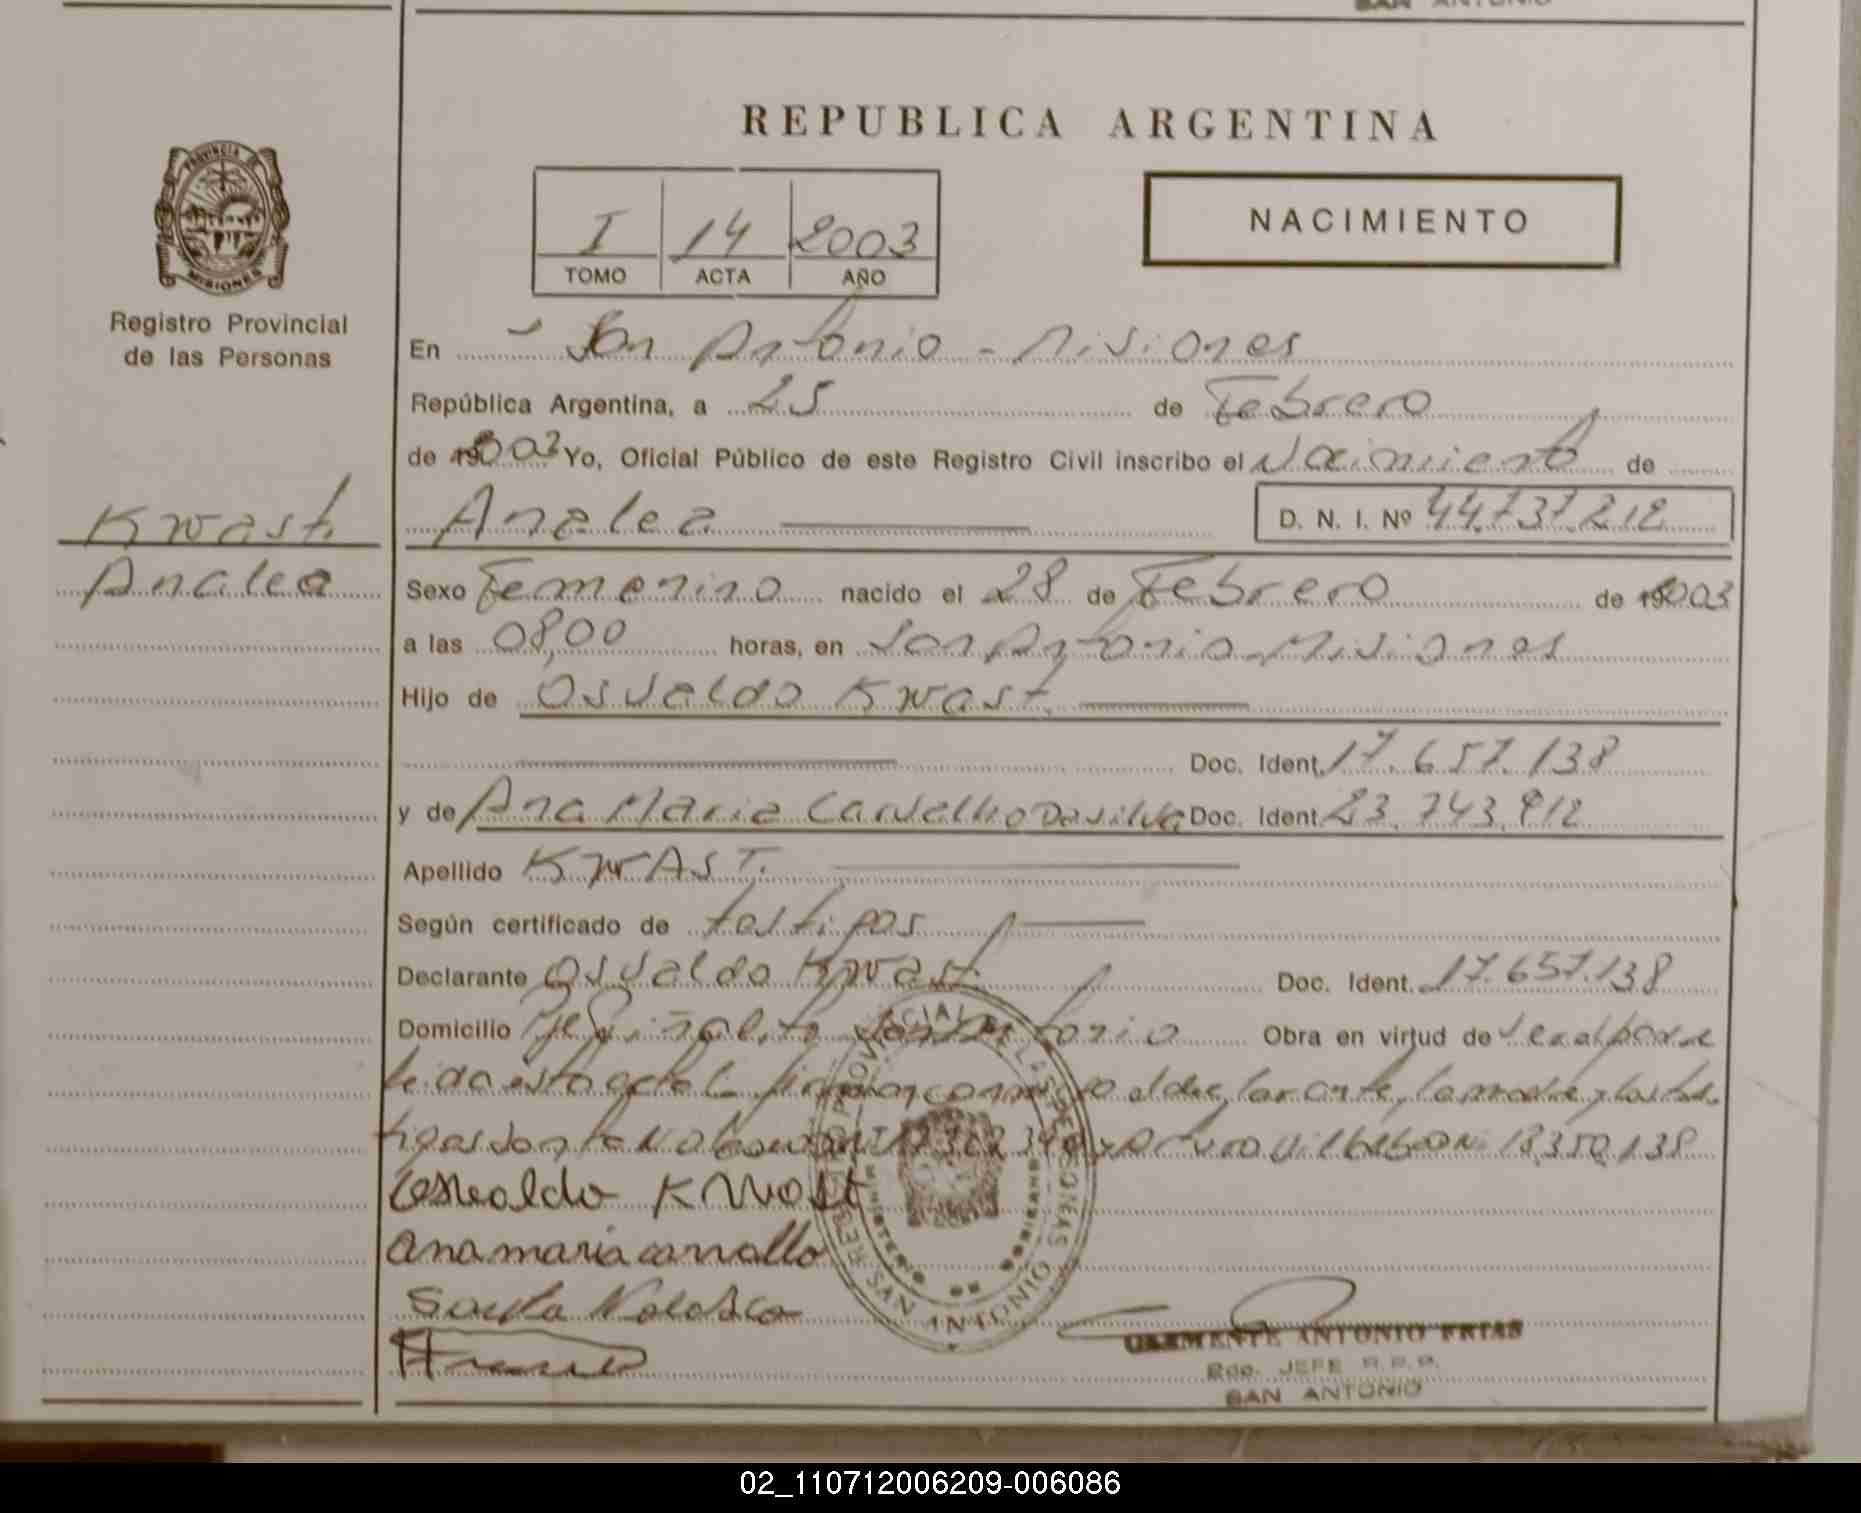 SAN ANTONIO
REPUBLICA ARGENTINA
PROVINCIA DE
MISIONES
Registro Provincial
de las Personas
I 14 2003
TOMO ACTA AÑO
NACIMIENTO
En San Antonio - Misiones
República Argentina, a 25 de Febrero
de 2003 Yo, Oficial Público de este Registro Civil inscribo el Nacimiento de
Kwast.
Analea
Analea D. N. I. Nº 44.737.212
Sexo Femenino nacido el 28 de Febrero de 2003
a las 08,00 horas, en San Antonio Misiones
Hijo de Osvaldo Kwast.
Doc. Ident. 17.657.138
y de Ana Maria Carvalho Da silva Doc. Ident. 23.743.912
Apellido KWAST.
Según certificado de testigos
Declarante Osvaldo Kwast. Doc. Ident. 17.657.138
Domicilio San Antonio Obra en virtud de
leida esta acta la firman conmigo el declarante, la madre y los tes
tigos 18.350.138
Osvaldo Kwast
Ana maria carvallo
Santa
REGISTRO PROVINCIAL DE LAS PERSONAS
MINISTERIO DE GOBIERNO
SAN ANTONIO
CLEMENTE ANTONIO FRIAS
JEFE R.P.P.
SAN ANTONIO
02_110712006209-006086